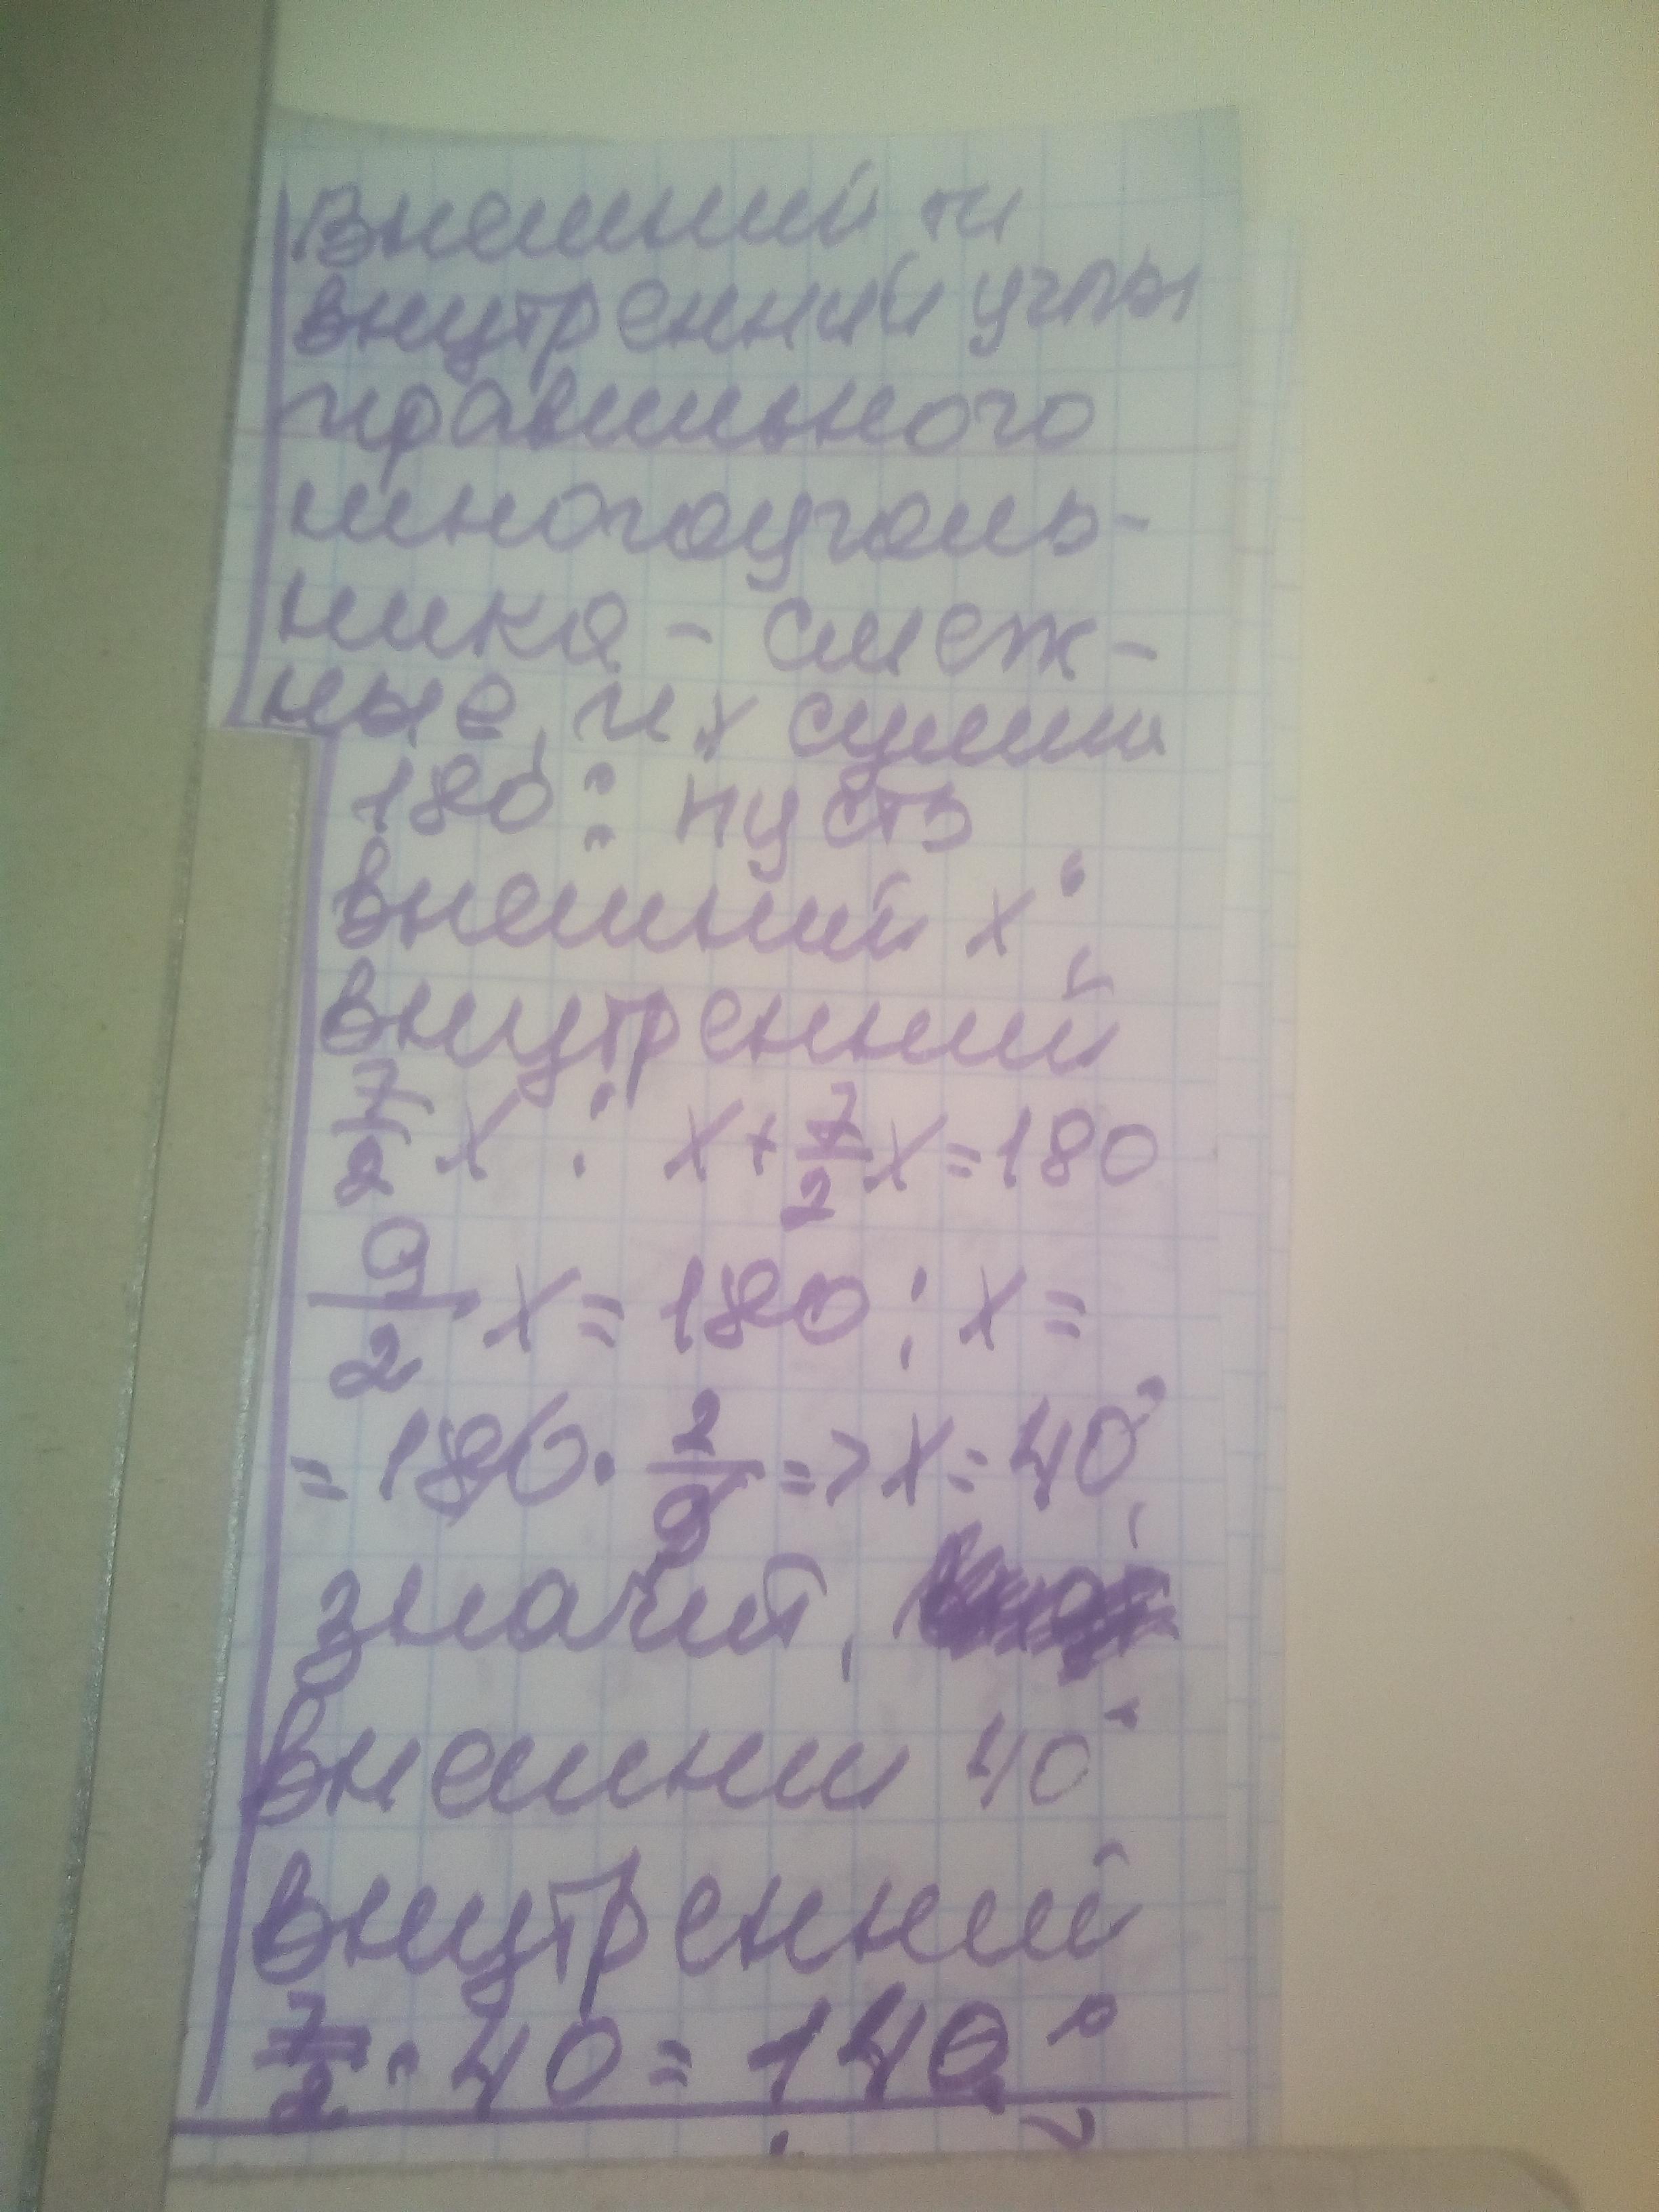 Внешний и
внутренний углы
правильного
многоуголь-
ника - смеж-
ные, их сумма
180°: пусть
внешний x°,
внутренний
7/2 x ; x + 7/2 x = 180
9/2 x = 180 ; x =
= 180 · 2/9 => x = 40°,
значит,
внешний 40°
внутренний
7/2 · 40 = 140°